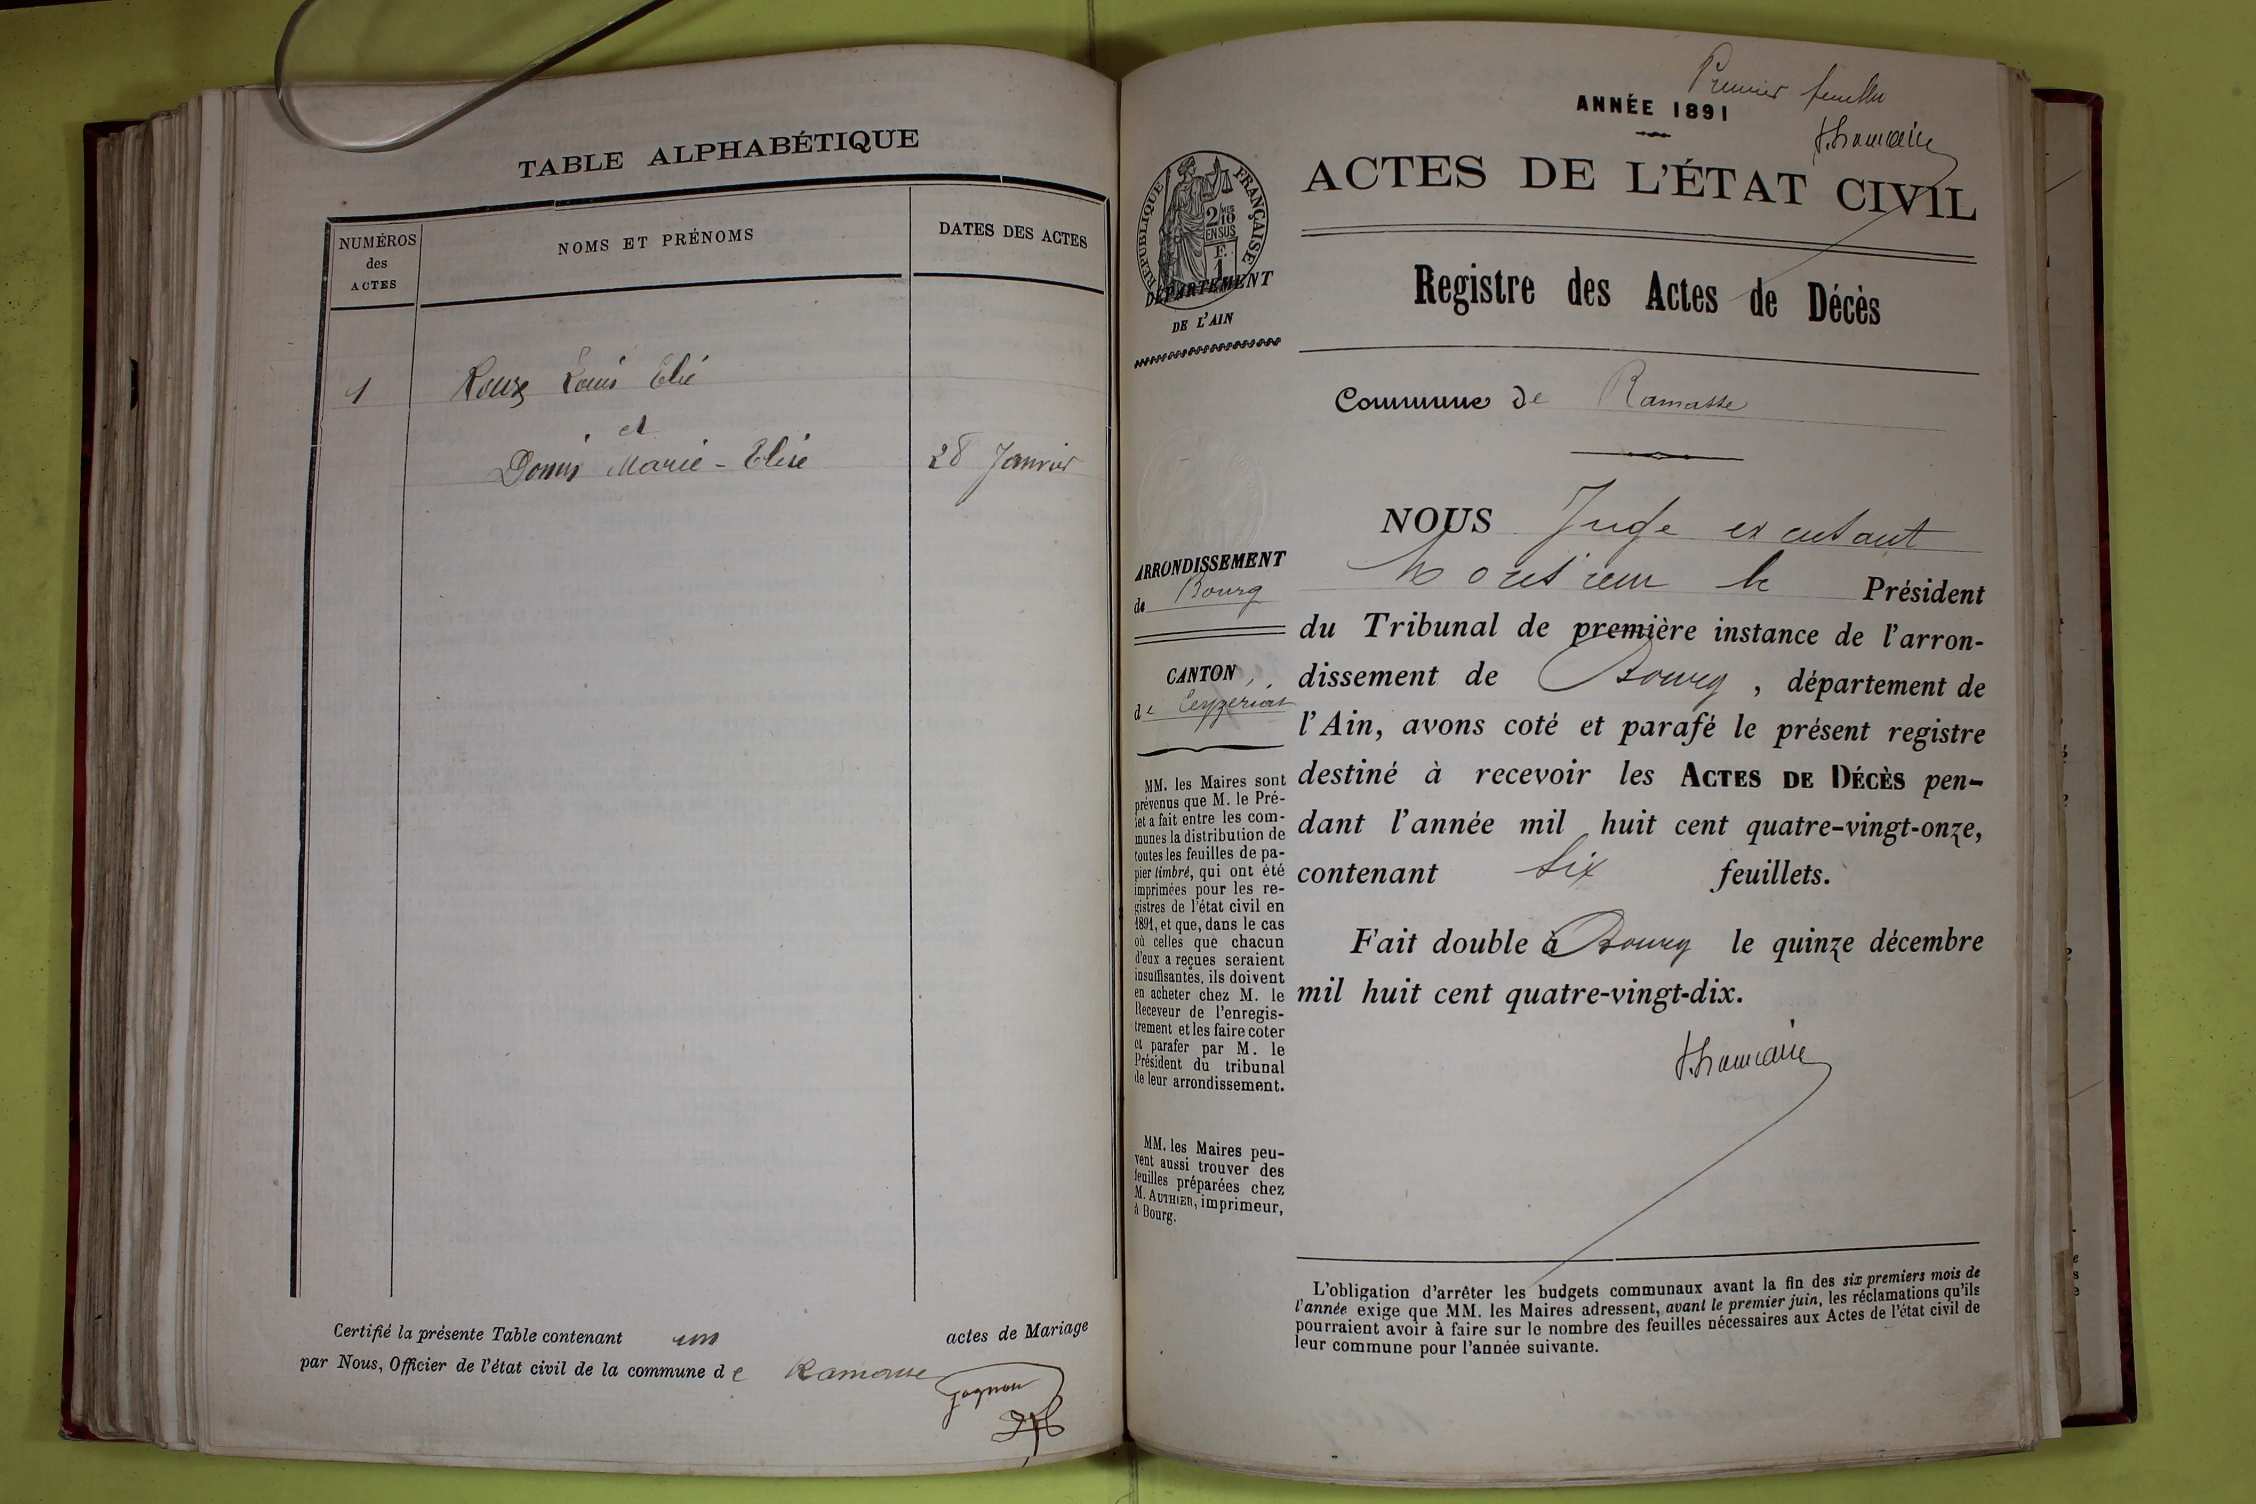 TABLE ALPHABÉTIQUE
NUMÉROS
des
ACTES
NOMS ET PRÉNOMS
DATES DES ACTES
1
Roux Louis Elie
et
Marie-Elise
28 Janvier
Certifié la présente Table contenant un actes de Mariage
par Nous, Officier de l'état civil de la commune de Ramasse
Gagnon
Premier feuillet
ANNÉE 1891
ACTES DE L'ÉTAT CIVIL
RÉPUBLIQUE FRANÇAISE
DÉPARTEMENT
DE L'AIN
Registre des Actes de Décès
Commune de Ramasse
ARRONDISSEMENT
de Bourg
CANTON
de Ceyzériat
MM. les Maires sont
prévenus que M. le Pré-
fet a fait entre les com-
munes la distribution de
toutes les feuilles de pa-
pier timbré, qui ont été
imprimées pour les re-
gistres de l'état civil en
1891, et que, dans le cas
où celles que chacun
d'eux a reçues seraient
insuffisantes, ils doivent
en acheter chez M. le
Receveur de l'enregis-
trement et les faire coter
et parafer par M. le
Président du tribunal
de leur arrondissement.
MM. les Maires peu-
vent aussi trouver des
feuilles préparées chez
M. AUTHIER, imprimeur,
à Bourg.
NOUS Juge excusant
Monsieur le Président
du Tribunal de première instance de l'arron-
dissement de Bourg, département de
l'Ain, avons coté et parafé le présent registre
destiné à recevoir les ACTES DE DÉCÈS pen-
dant l'année mil huit cent quatre-vingt-onze,
contenant six feuillets.
Fait double à Bourg le quinze décembre
mil huit cent quatre-vingt-dix.
L'obligation d'arrêter les budgets communaux avant la fin des six premiers mois de
l'année exige que MM. les Maires adressent, avant le premier juin, les réclamations qu'ils
pourraient avoir à faire sur le nombre des feuilles nécessaires aux Actes de l'état civil de
leur commune pour l'année suivante.